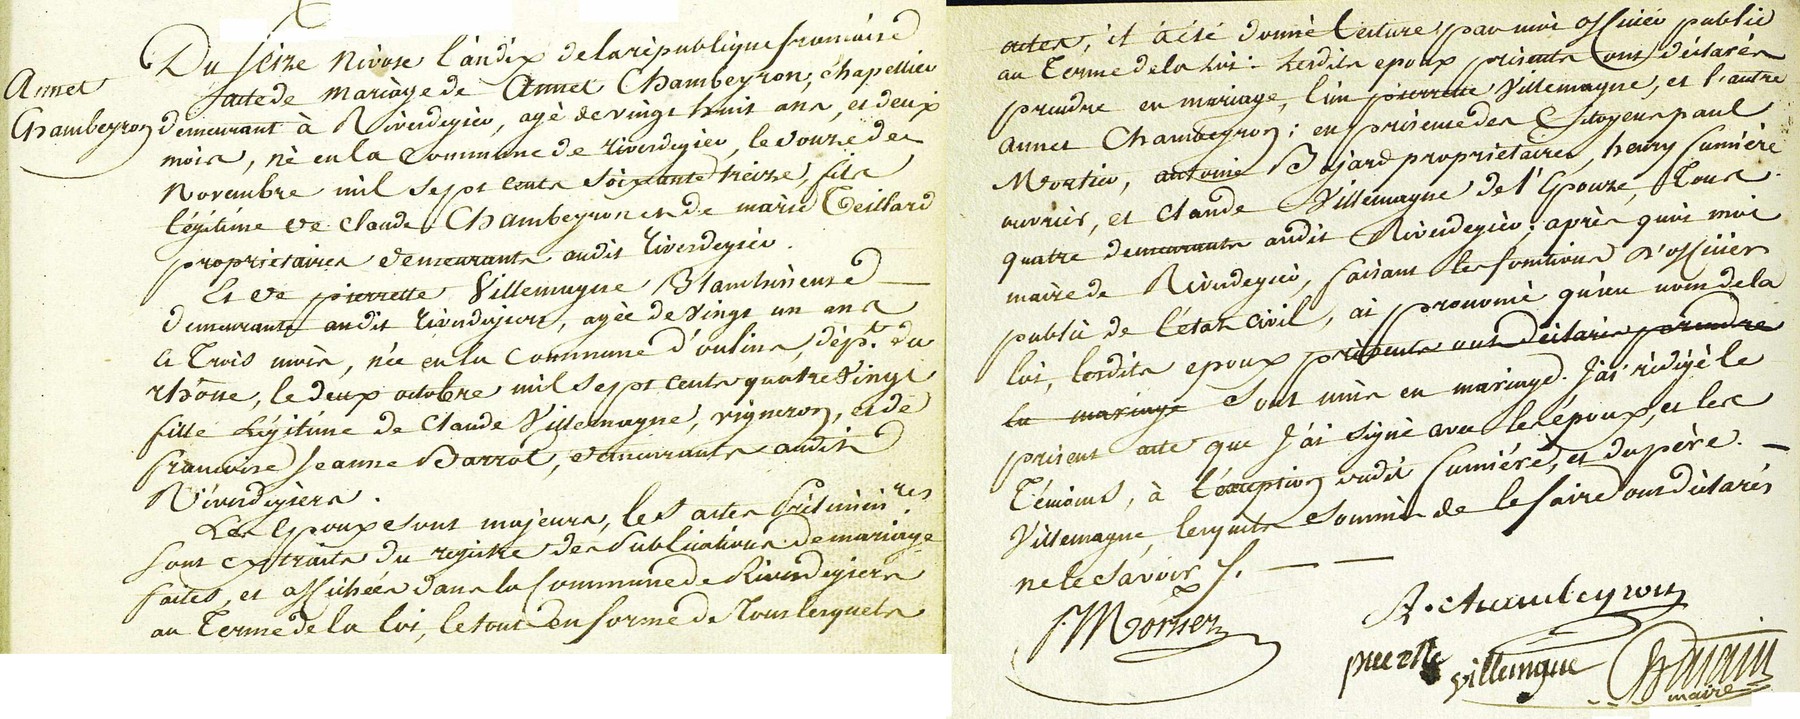 Annet
Chambeyron
Du seize Nivose l'an dix de la république francaise
acte de mariage de Annet Chambeyron, chapellier
demeurant à Rivedegier, agé de vingt huit ans, et deux
mois, né en la commune de rivedegier, le douze de
Novembre mil sept cents soixante treize, fils
légitime de Claude Chambeyron et de marie Teillard
propriétaires demeurants audit rivedegier.
Et de pierrette Villemagne Blanchisseuse
demeurante audit rivedegiers, agée de vingt un ans
et trois mois, née en la commune d'oulins, dépt. du
rhône, le deux octobre mil sept cents quatre vingt
fille légitime de Claude Villemagne, vigneron, et de
francoise Jeanne Barrot, demeurants audit
Rivedegiers.
Les Epoux sont majeurs, les actes Préliminres
sont extraits du registre des Publications de mariage
faites, et affichées dans la Commune de Rivedegiers
au Terme de la loi, le tout en forme de Tous lesquels
actes, il a été donné lecture par moi officier public
au Terme de la loi. Lesdits epoux présents ont déclarés
prendre en mariage, l'un pierrette Villemagne, et l'autre
Annet Chambeyron; en présence des Citoyens paul
Mortier, antoine Bajard propriétaires, henry Lumière
ouvrier, et Claude Villemagne de l'Epouze, Tous
quatre demeurants audit Rivedegier; après quoi moi
maire de Rivedegier, faisant les fonctions d'officier
public de l'état civil, ai prononcé qu'au nom de la
loi, lesdits epoux présents ont déclarés prendre
en mariage sont unis en mariage. J'ai rédigé le
présent acte que j'ai signé avec les époux, et les
Témoins, à l'exception dudit Lumière, et du père
Villemagne, lesquels sommés de le faire ont déclarés
ne le savoir f.
Mortier
A. chambeyron
pierette
villemagne
maire